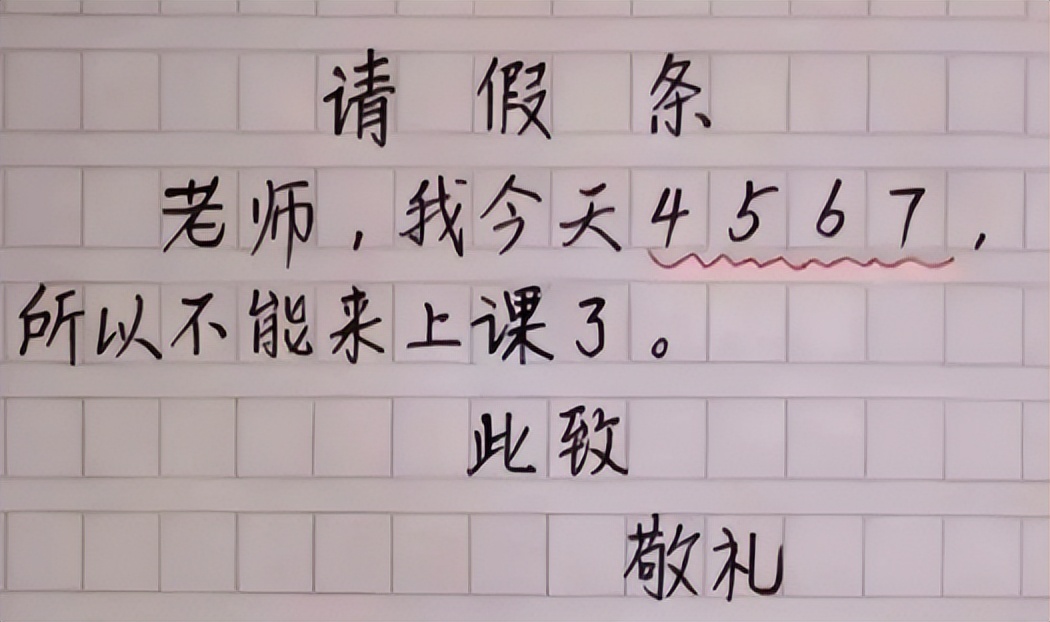 请假条
老师，我今天4567，
所以不能来上课了。
此致
敬礼